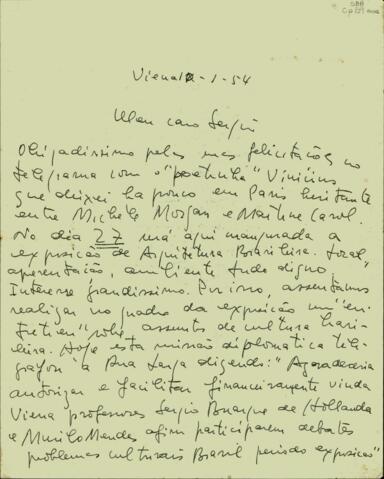 SBH
Cp 129
Viena - 1 - 54
Meu caro Sergio
Obrigadissimo pelas suas felicitações no
telegrama com o "poetinha" Vinicius
que deixei ha pouco em Paris hesitante
entre Michèle Morgan e Martine Carol.
No dia 27 será aqui inaugurada a
exposição de Arquitetura Brasileira. Local,
apresentação, ambiente tudo digno.
Interesse grandissimo. Por isso, assentamos
realizar no quadro da exposição um "en-
tretien" sobre assuntos de cultura brasi-
leira. Hoje esta missão diplomatica tele-
grafou à Sua dizendo: "Agradeceria
autorizar e facilitar financeiramente vinda
Viena professores Sergio Buarque de Hollanda
e Murilo Mendes afim participarem debates
problemas culturais Brasil periodo exposição"